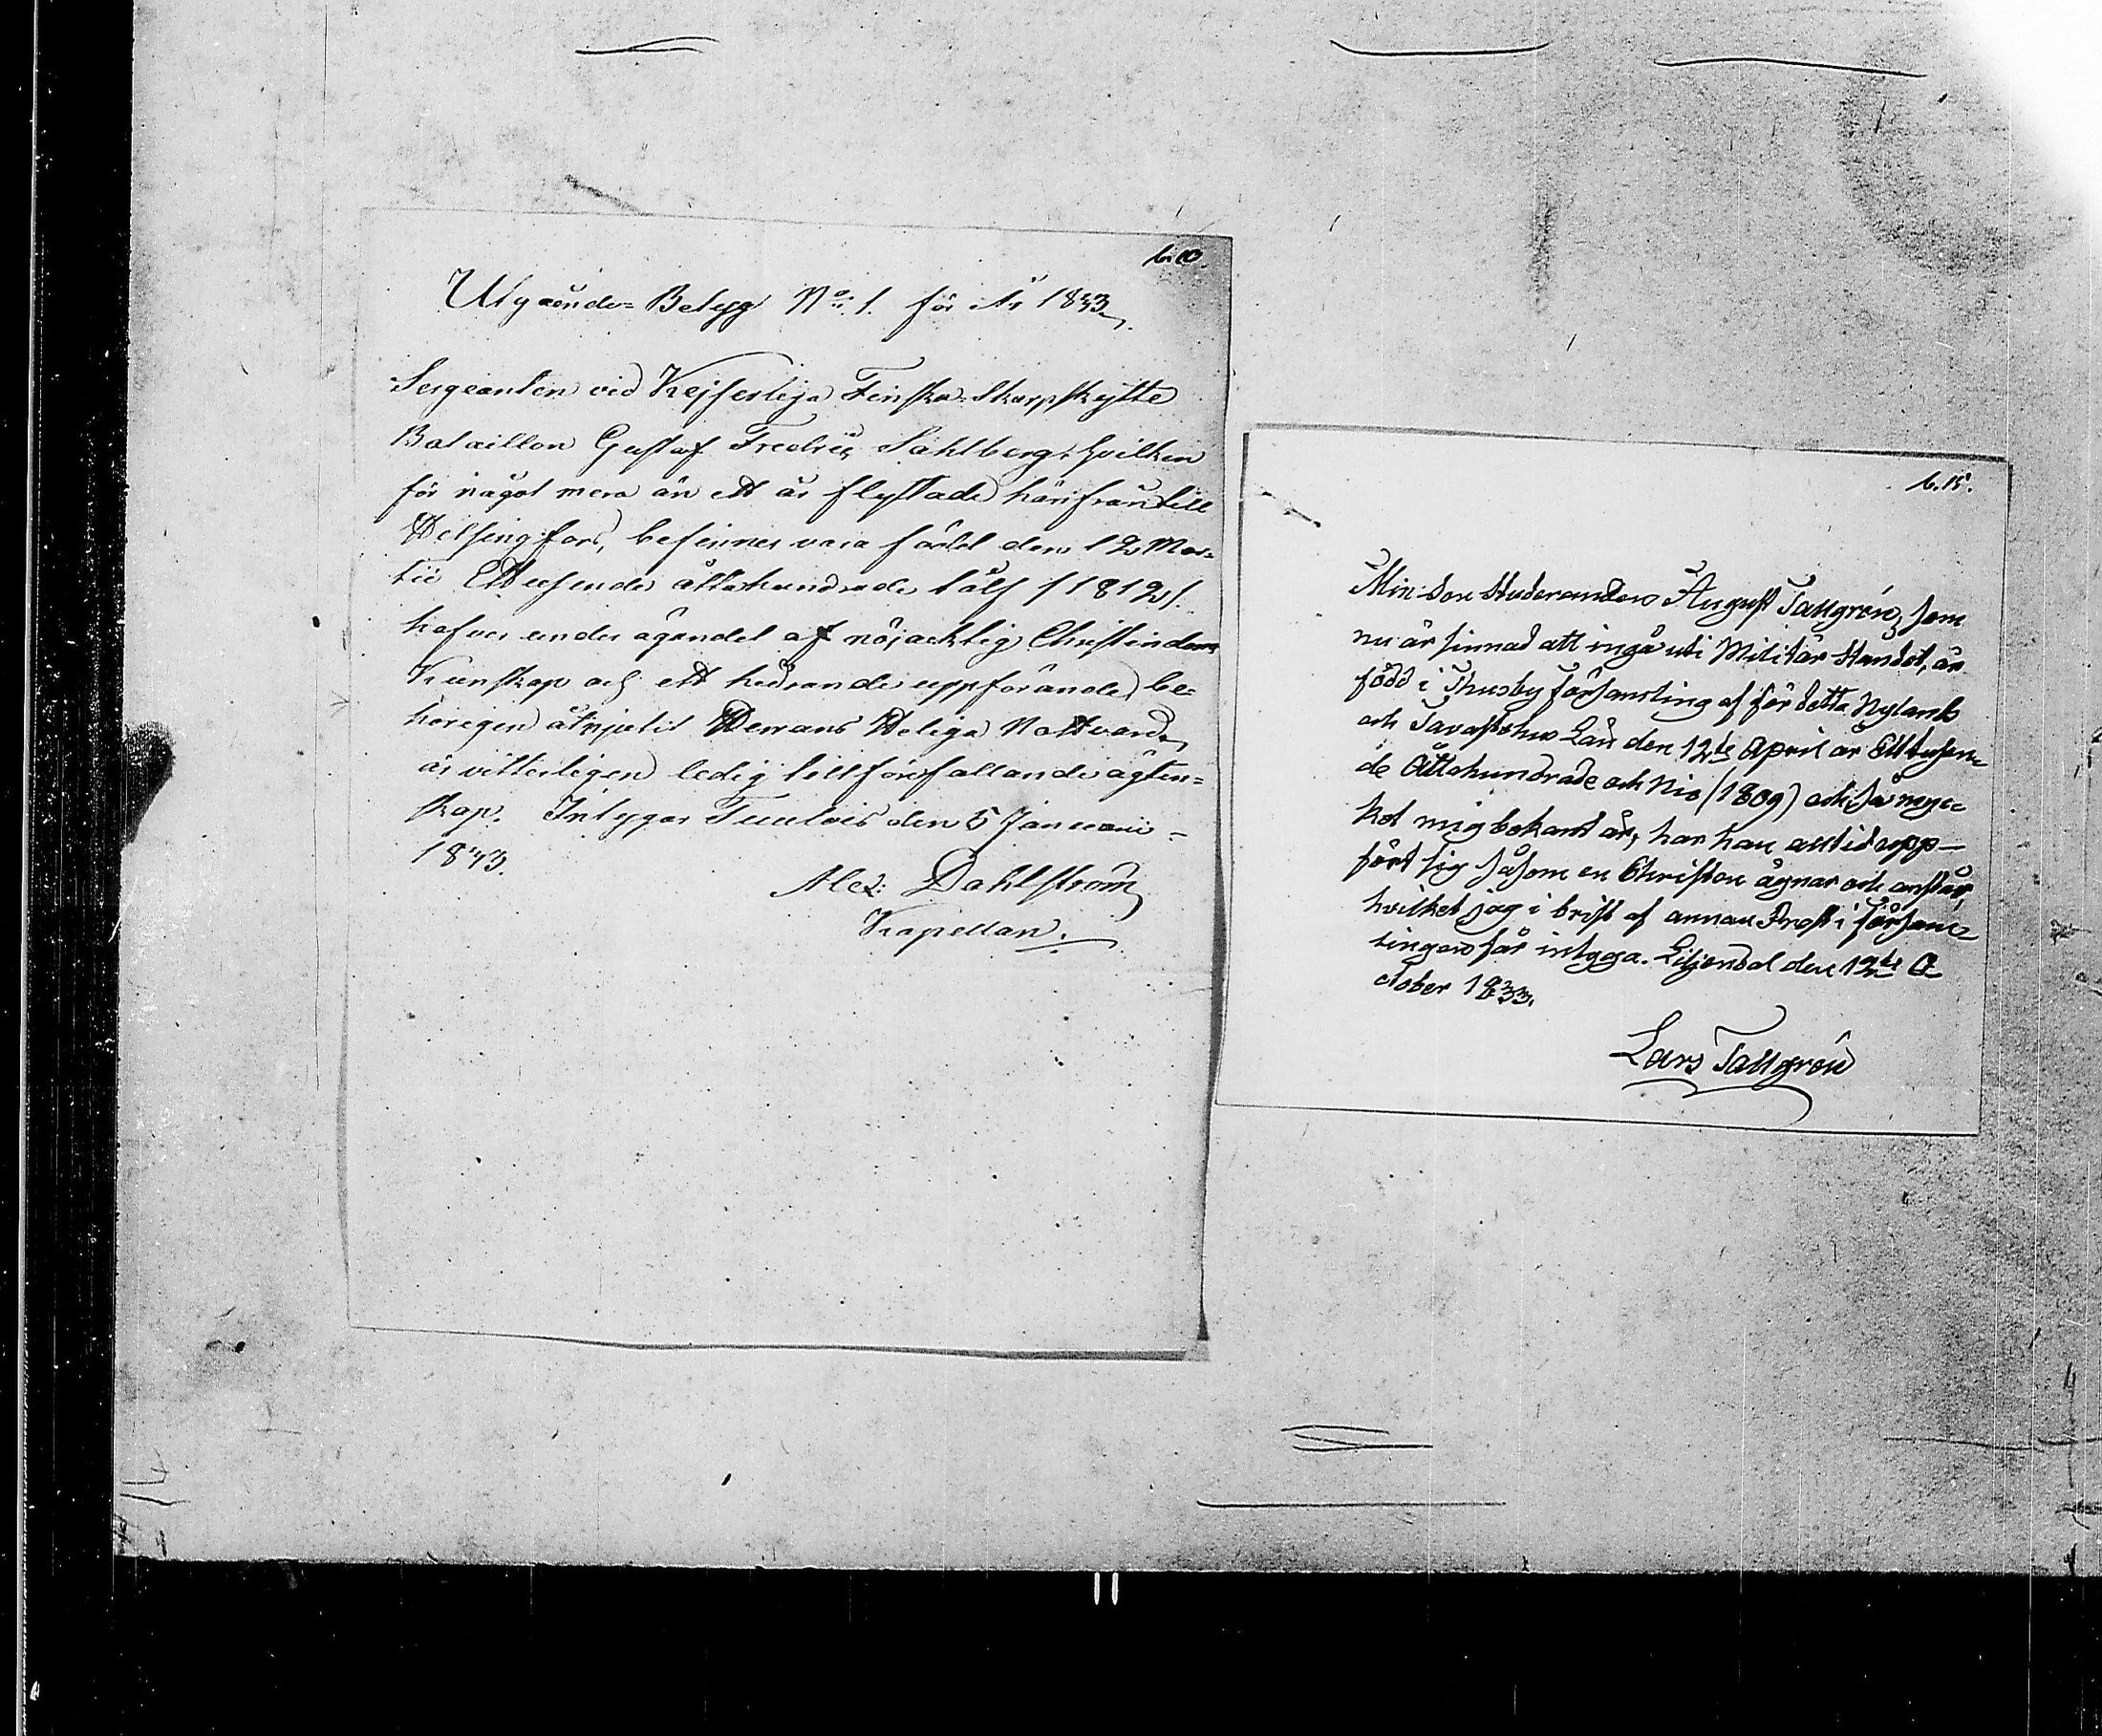 b. 10.
Utgående= Betyg No. 1. för År 1833.
Sergeanten vid Kejserliga Finska=Skarpskytte
Bataillon Gustaf Fredric Sahlberg, hvilken
för något mera än ett år flyttade härifrån till
Helsingfors, befinnes vara född den 12 Mar=
tii Ettusende åttahundrade tolf /1812/.
hafver under ägandet af nöjacktig Christindoms
Kunskap och ett hedrande uppförande, be=
hörigen åtnjutit Herrans Heliga Nattvard,
är vitterligen ledig till förefallande ägten=
skap. Intygar Tuulois den 5 Januari
1833.
Alex: Dahlström
Kapellan.
b. 15.
Min Son Studeranden August Tallgrén, som
nu är sinnad att ingå uti Militär Ståndet, är
född i Thusby församling af för detta Nylands
och Tavastehus Län den 12te April år Ettusen=
de Åttahundrade och Nio (1809) och så myc=
ket mig bekant är, har han alltid upp-
fört sig såsom en Christen ägnar och anstår,
hvilket jag i brist af annan Prest i försam=
lingen får intyga. Liljendal den 12te O
ctober 1833.
Lars Tallgrén